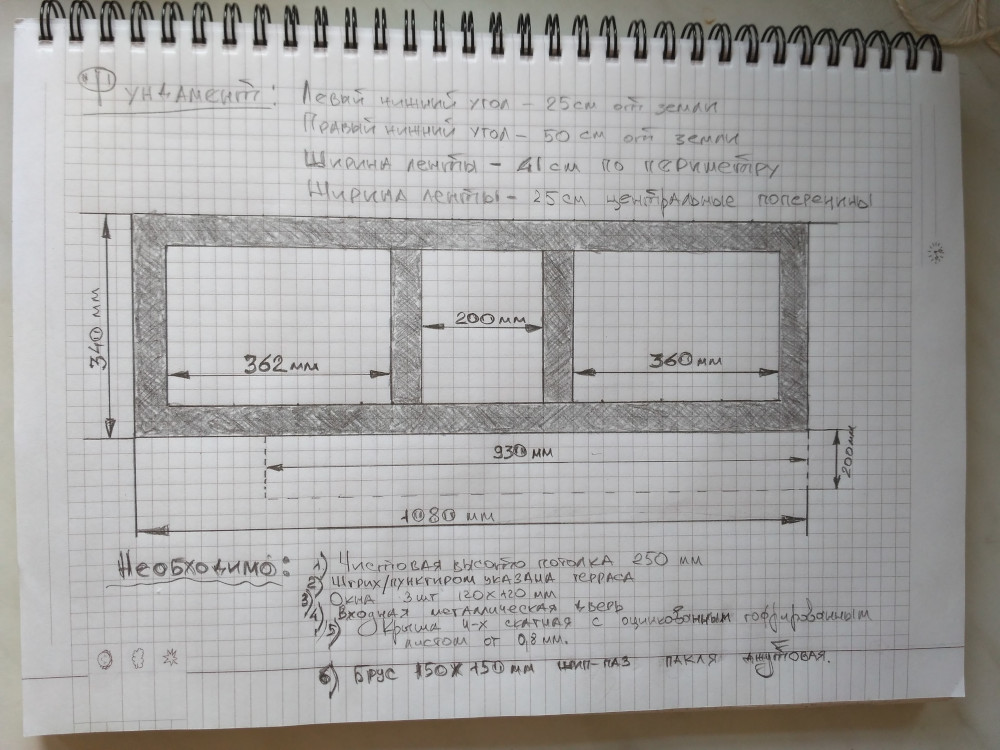 Фундамент: Левый нижний угол - 25см от земли
Правый нижний угол - 50 см от земли
Ширина ленты - 41 см по периметру
Ширина ленты - 25см центральные поперецины
340 мм
362 мм
200 мм
360 мм
930 мм
200 мм
1080 мм
Необходимо: 1) Чистовая высото потолка 250 мм
2) Штрих/пунктиром указана терраса
3) Окна 3 шт 120х120 мм
4) Входная металлическая дверь
5) Окрыша 4-х скатная с оцинкованным гоффрированным
листом от 0,8 мм.
6) Брус 150х150 мм шип-паз пакля джутовая.